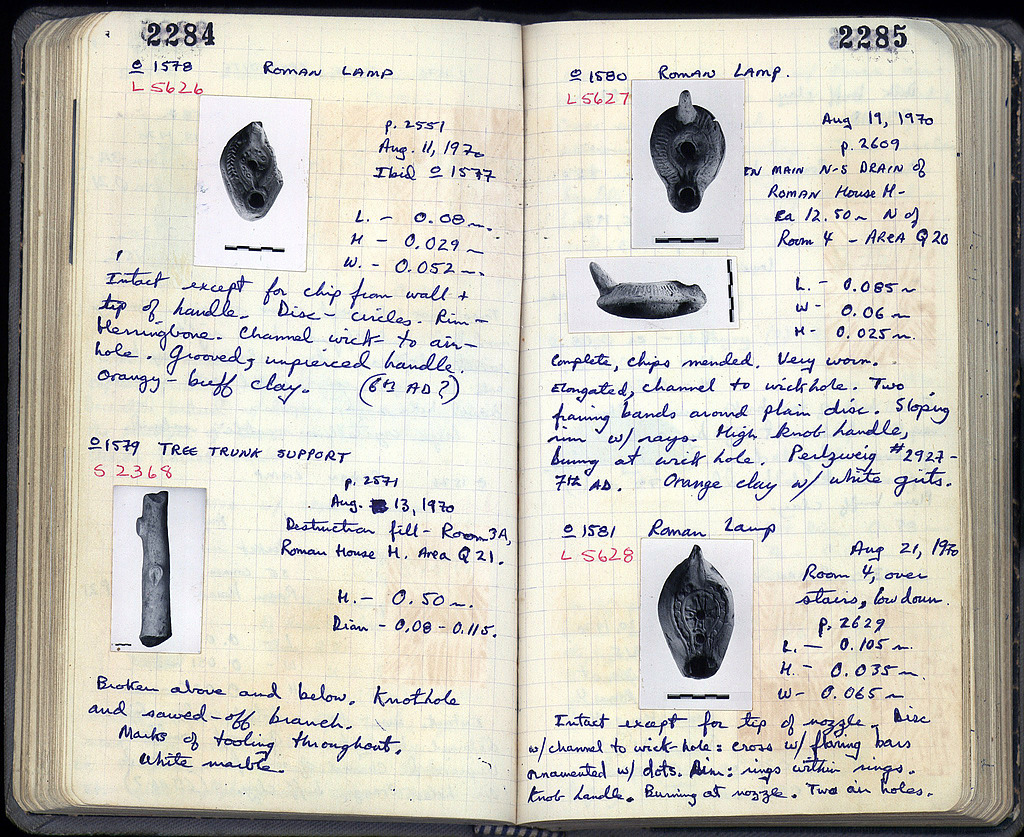 2284
o 1578 ROMAN LAMP
L 5626
p. 2551
Aug. 11, 1970
Ibid o 1577
L. - 0.08 m.
H - 0.029 m
W. - 0.052 m.
Intact except for chip from wall +
tip of handle. Disc - circles. Rim -
Herringbone. Channel wick to air-
hole. Grooved, unpierced handle.
Orangy-buff clay. (6th AD?)
o 1579 TREE TRUNK SUPPORT
S 2368
p. 2571
Aug. 13, 1970
Destruction fill - Room 3A,
Roman House H. Area Q 21.
H. - 0.50 m.
Diam - 0.08 - 0.115.
Broken above and below. Knothole
and sawed-off branch.
Marks of tooling throughout.
White marble.
2285
o 1580 ROMAN LAMP.
L 5627
Aug 19, 1970
p. 2609
IN MAIN N-S DRAIN of
ROMAN HOUSE H -
ca 12.50 m N of
Room 4 - AREA Q 20
L. - 0.085 m
W - 0.06 m
H - 0.025 m.
Complete, chips mended. Very worn.
Elongated, channel to wickhole. Two
framing bands around plain disc. Sloping
rim w/ rays. High knob handle,
burning at wick hole. Perlzweig # 2927 -
7th AD. Orange clay w/ white grits.
o 1581 Roman Lamp
L 5628
Aug 21, 1970
Room 4, over
stairs, low down.
p. 2629
L. - 0.105 m.
H. - 0.035 m.
W - 0.065 m
Intact except for tip of nozzle. Disc
w/channel to wick-hole: cross w/ flaring bars
ornamented w/ dots. Rim: rings within rings.
Knob handle. Burning at nozzle. Two air holes.